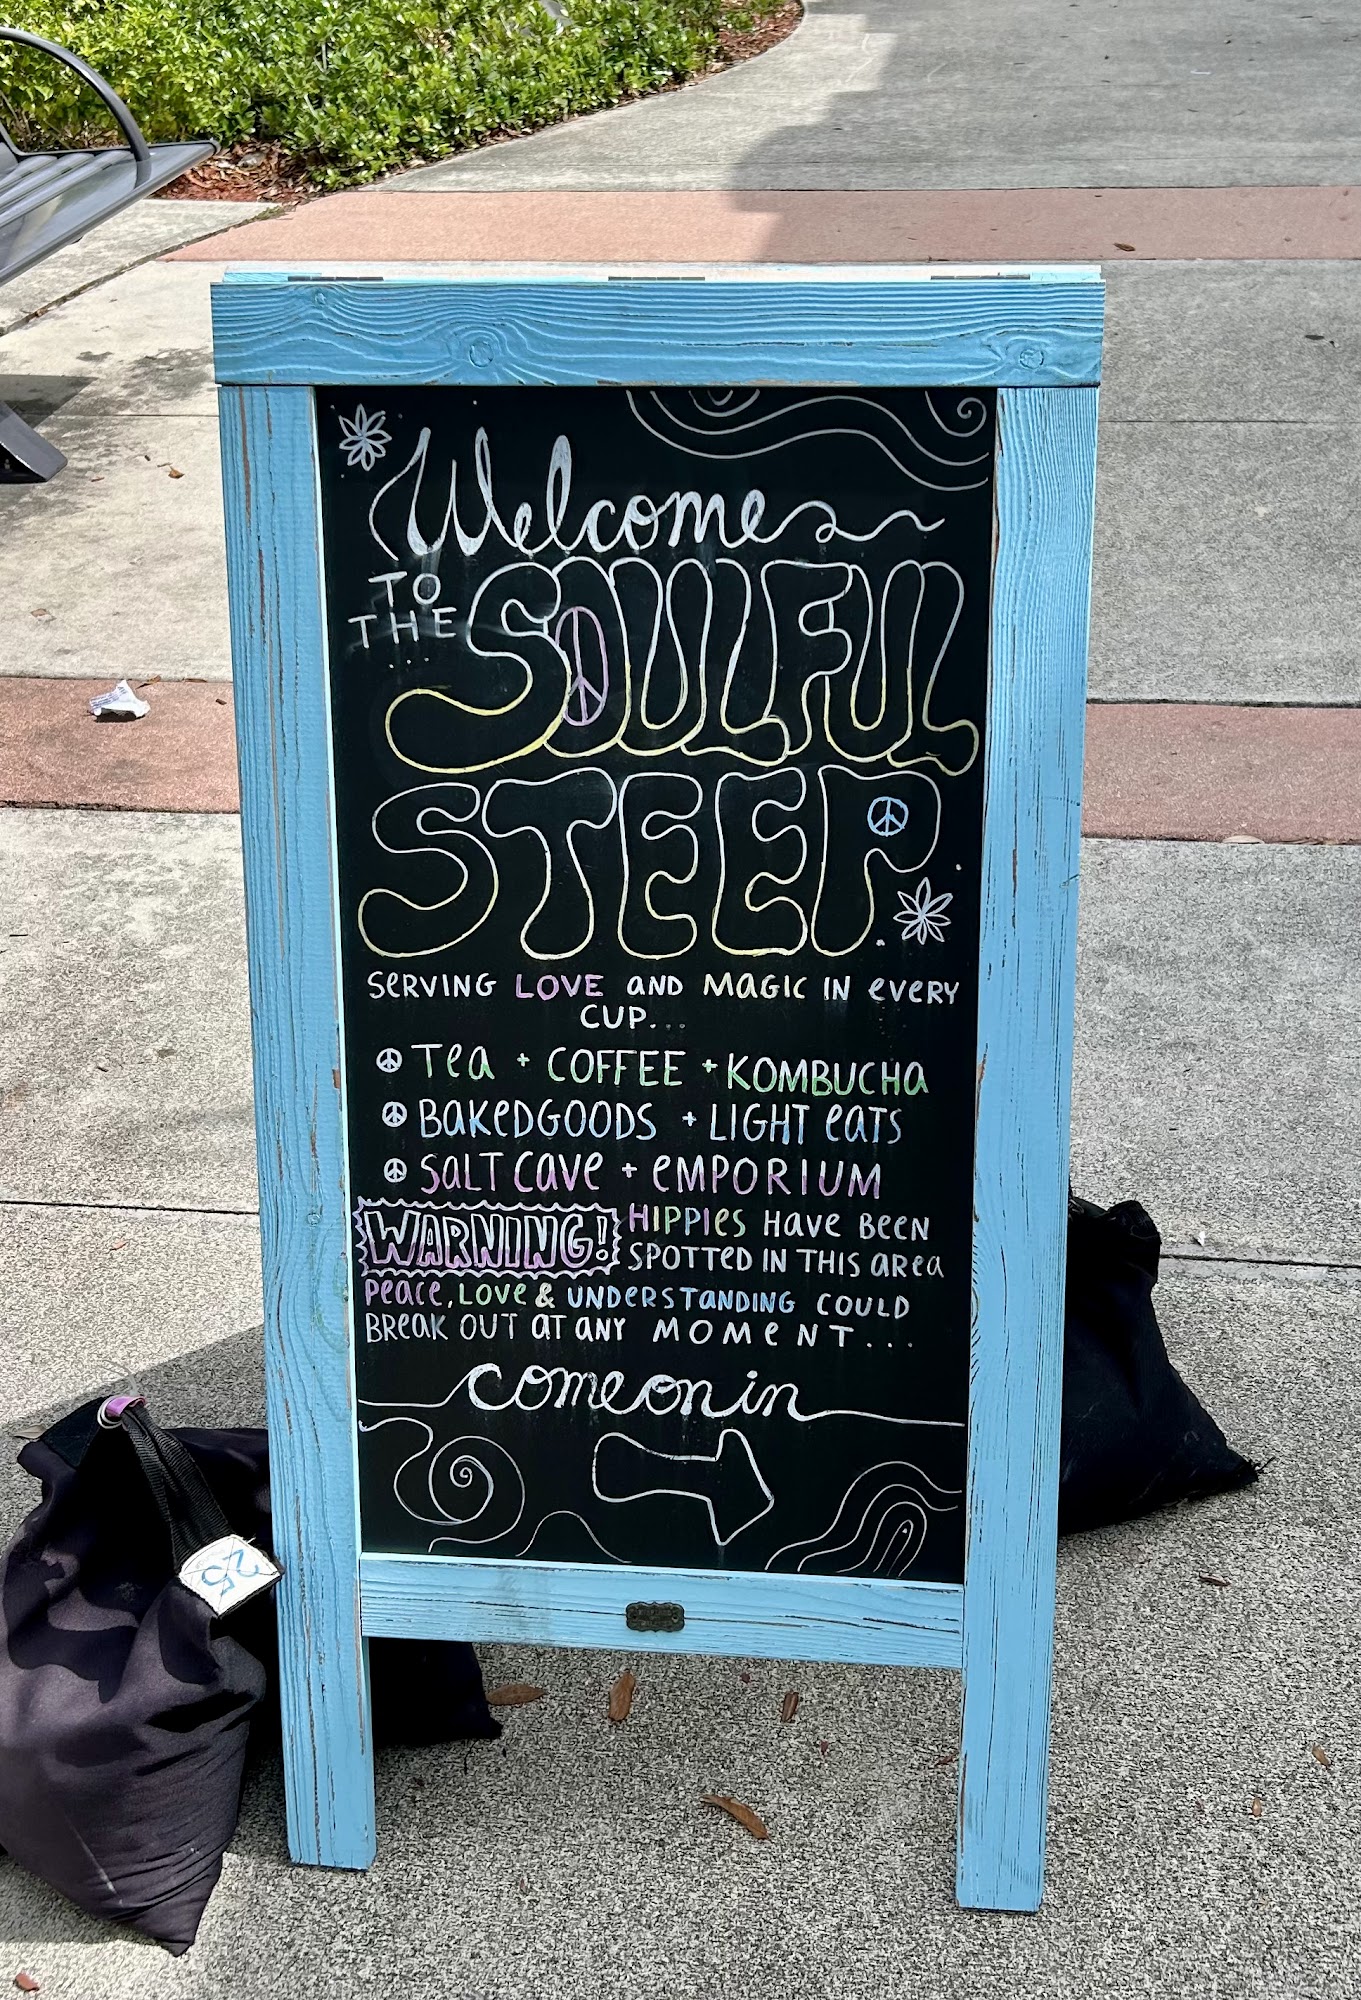 Welcome
TO
THE
....
SOULFUL
STEEP.
SERVING LOVE AND MAGIC IN EVERY
CUP...
Tea + COFFEE + KOMBUCHA
BAKEDGOODS + LIGHT EATS
SALT CAVE + EMPORIUM
WARNING! HIPPIES HAVE BEEN
SPOTTED IN THIS AREA
PEACE, LOVE & UNDERSTANDING COULD
BREAK OUT AT ANY MOMENT...
come on in
25